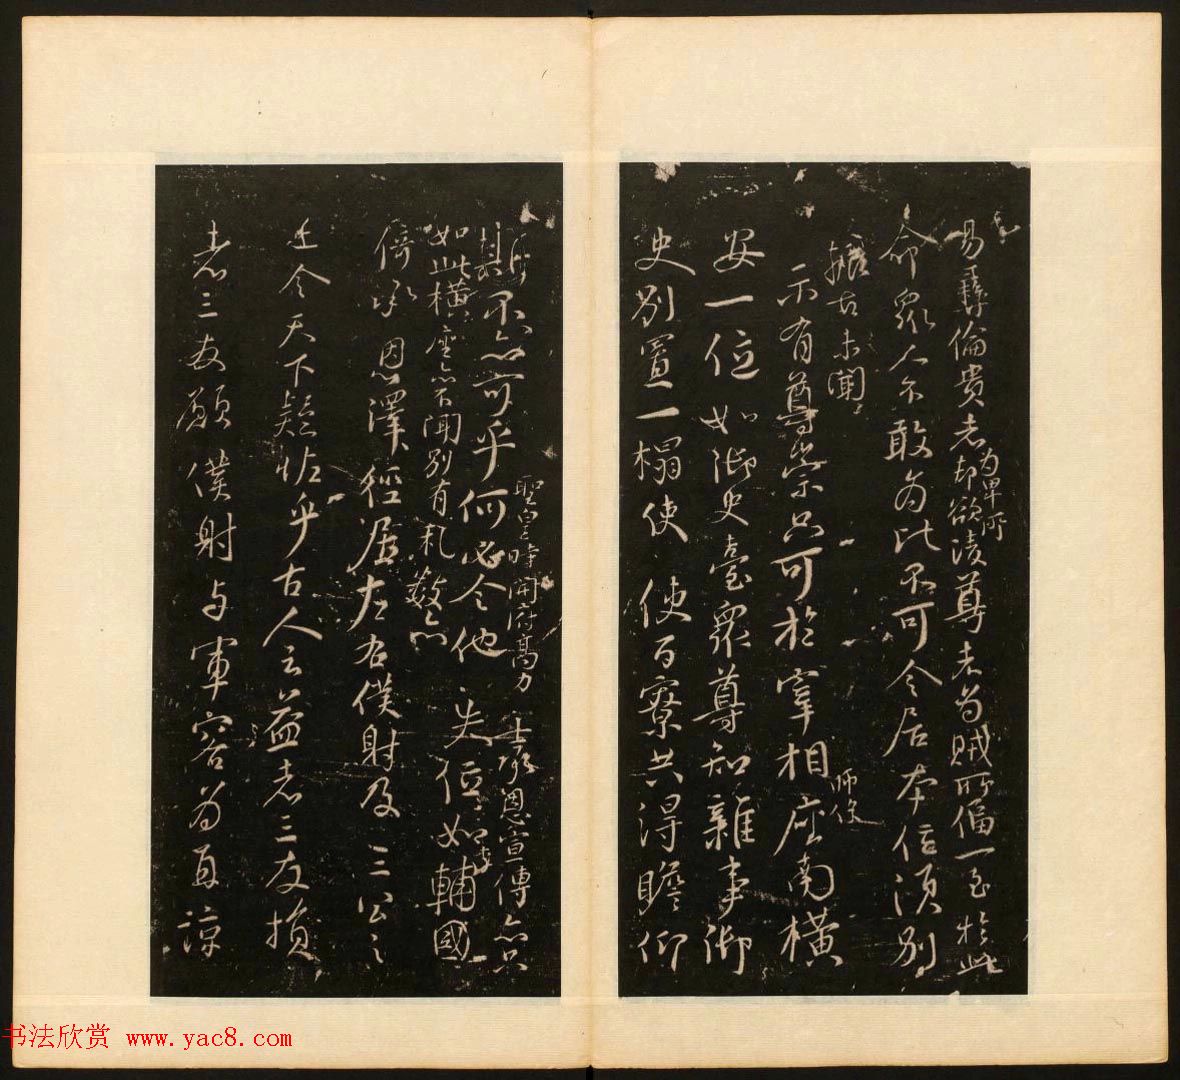 易彝倫貴者為卑所却欲凌尊者為賊所偪一至於此
振古未聞
命眾人不敢為比不可令居本位須別
示有尊崇只可於宰相師保座南橫
安一位如御史臺眾尊知雜事御
史別置一榻使使百寮共得瞻仰
不亦可乎
聖皇時開府高力士承恩宣傳亦只
如此橫座亦不聞別有礼數亦
何必令他失位如李輔國
倚承恩澤徑居左右僕射及三公之
上令天下疑怪乎古人云益者三友損
者三友願僕射与軍容為直諒
书法欣赏 www.yac8.com